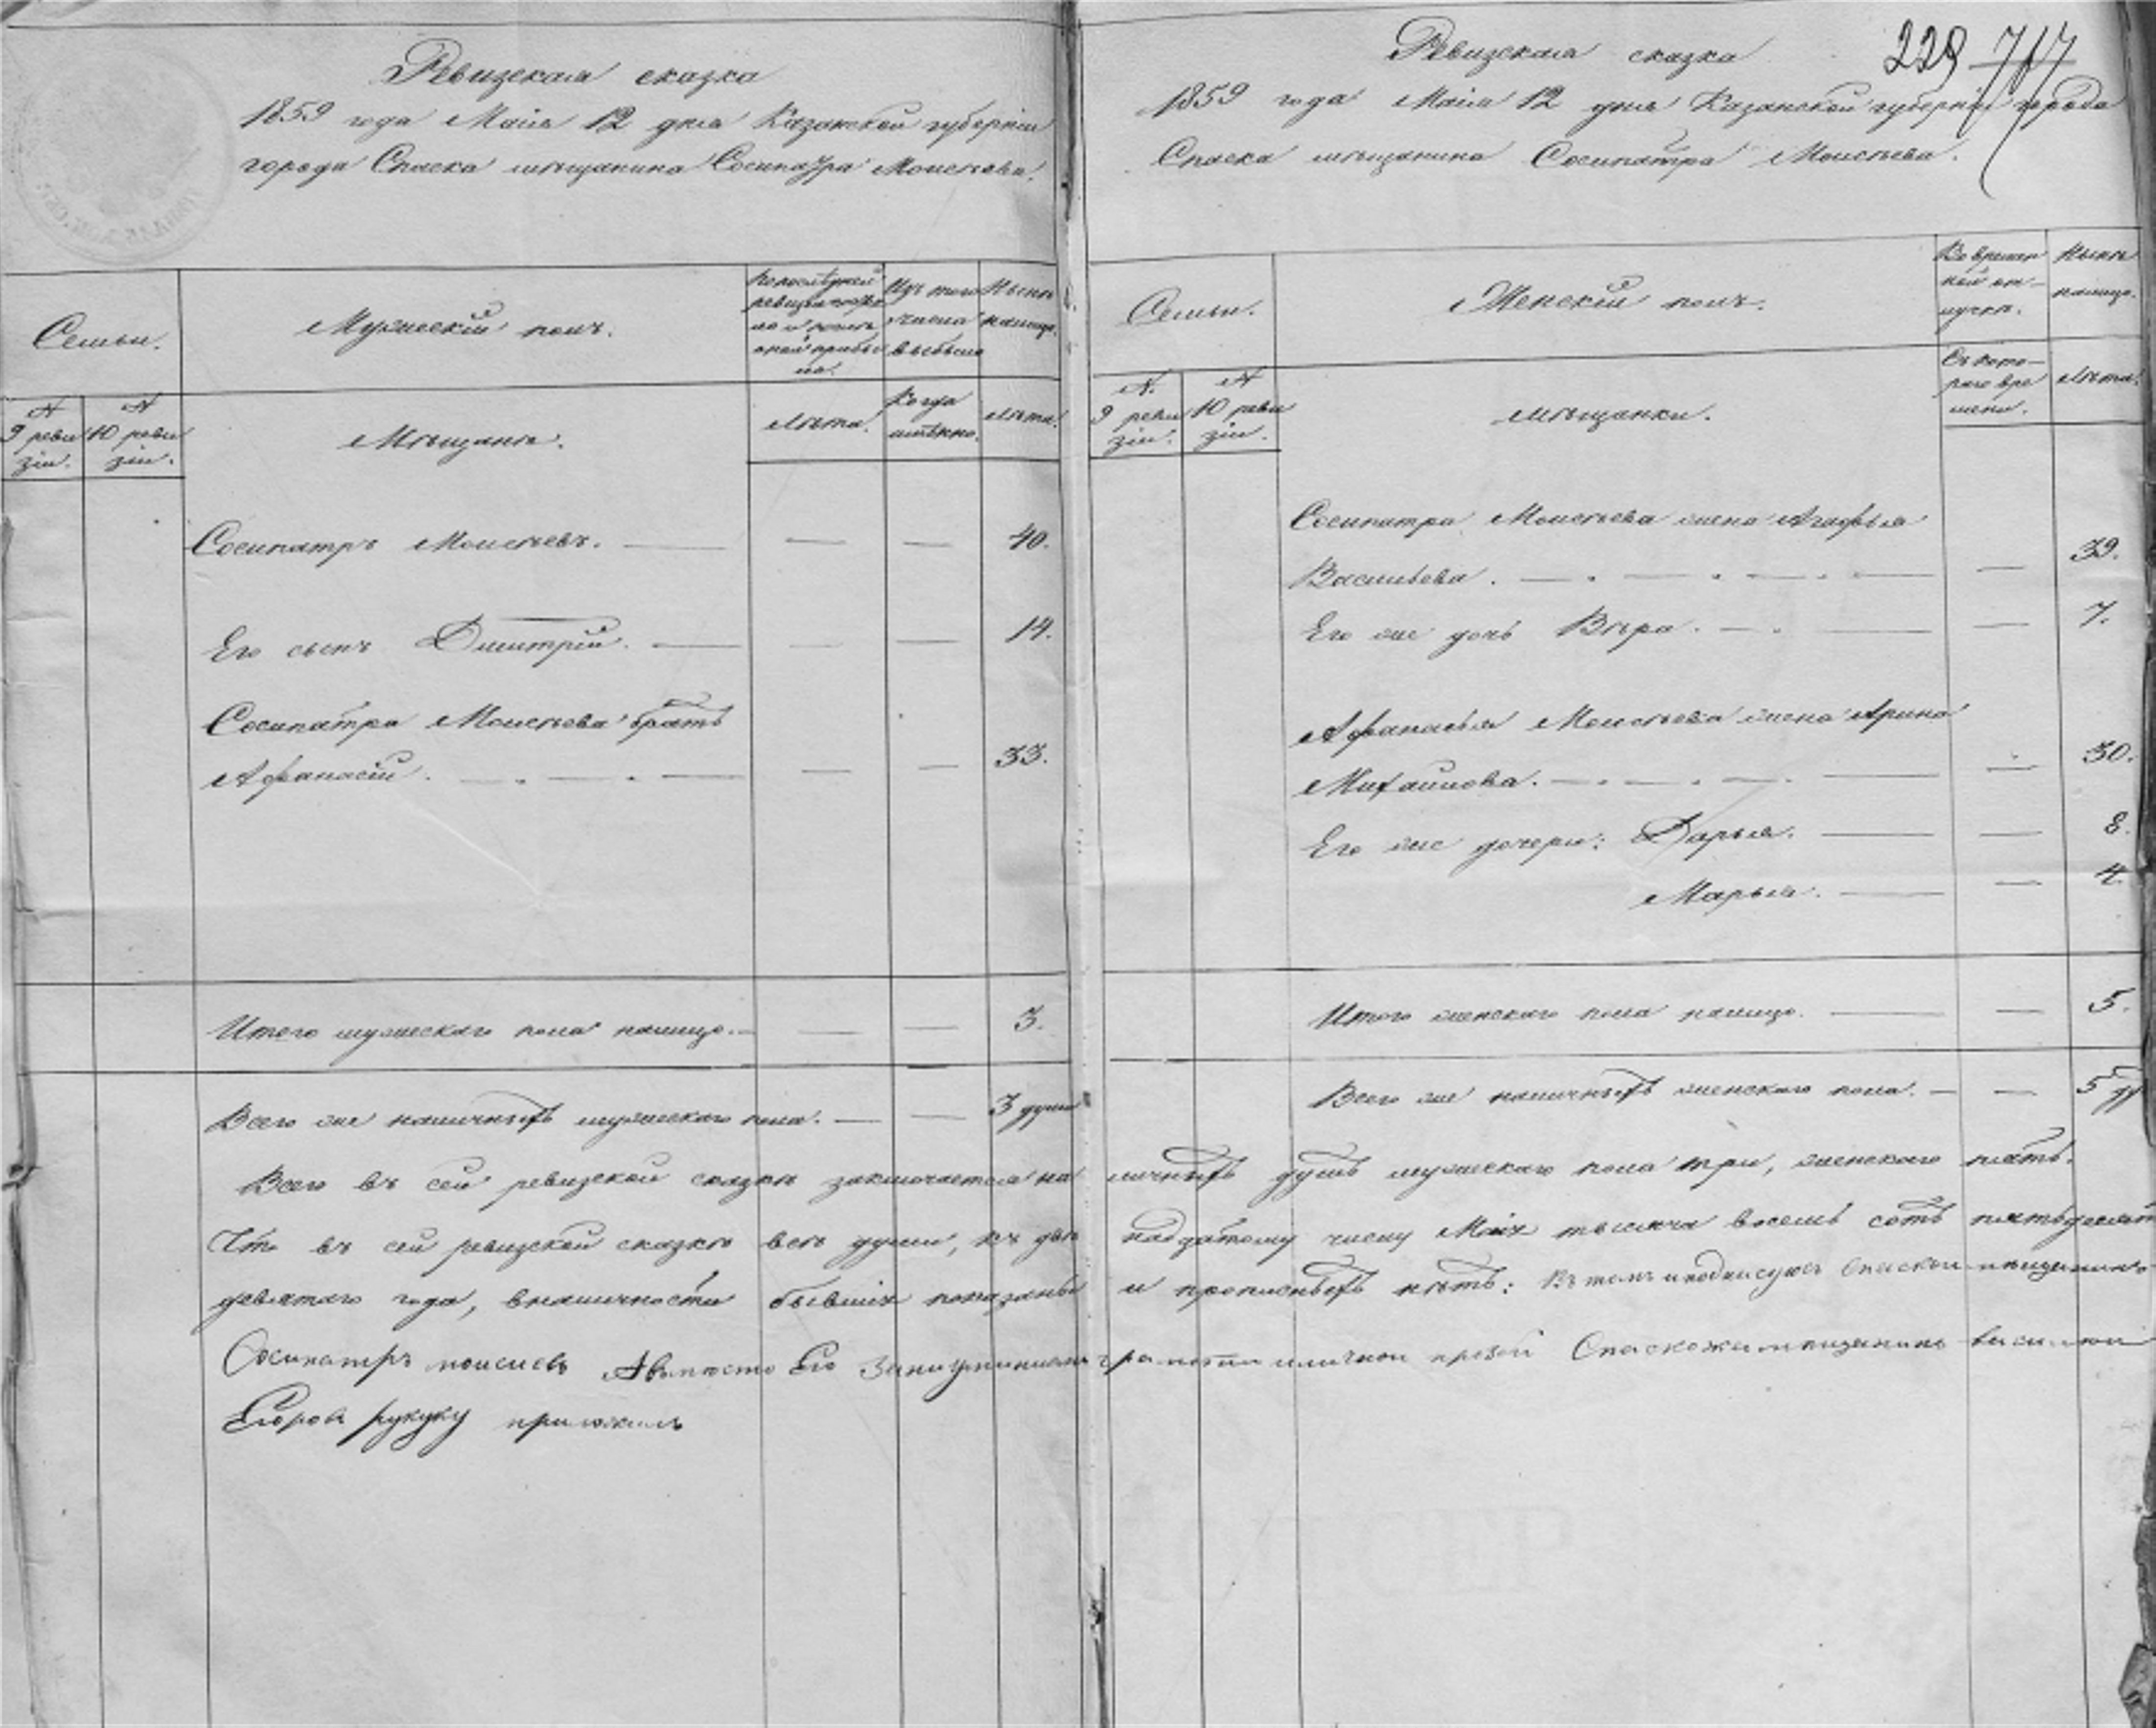 Ревизская сказка
1859 года Маія 12 дня Казанской губерніи
города Спаска мѣщанина Сосипатра Моисѣева.
Семьи.
Мужескій полъ.
По послѣдней
ревизіи
и послѣ
оной прибы
ло.
Изъ того
числа
выбыло
Нынѣ
налицо.
№
9 реви
зіи.
№
10 реви
зіи.
Мѣщане.
Лѣта.
Когда
имянно.
Лѣта.
Сосипатръ Моисѣевъ. — — — 40.
Его сынъ Дмитрій. — — — 14.
Сосипатра Моисѣева братъ
Афанасій. — — — 33.
Итого мужескаго пола налицо. — — — 3.
Всего же наличныхъ мужескаго пола. — — 3 души
229 717
Ревизская сказка
1859 года Маія 12 дня Казанской губерніи города
Спаска мѣщанина Сосипатра Моисѣева.
Семьи.
Женскій полъ.
Во времен
ной от-
лучкѣ.
Нынѣ
налицо.
№.
9 реви
зіи.
№
10 реви
зіи.
Мѣщанки.
Съ кото-
раго вре
мени.
Лѣта.
Сосипатра Моисѣева жена Агафья
Васильева. — — 39.
Его же дочь Вѣра. — — 7.
Афанасья Моисѣева жена Арина
Михайлова. — — 30.
Его же дочери: Дарья. — — 8.
Марья. — — 4.
Итого женскаго пола налицо. — — 5.
Всего же наличныхъ женскаго пола. — — 5 ду
Всего въ сей ревизской сказкѣ заключается на личныхъ душъ мужескаго пола три, женскаго пять.
Что въ сей ревизской сказкѣ всѣ души, къ две надцатому числу Маія тысяча восемь сотъ пятьдесят
девятаго года, вналичности бывшія показаны и прописныхъ нѣтъ: Въ томъ и подписуюсь Спаской мещанинъ
Осипатръ моисиевъ Авместо Его грамоти иличной прозбой мещанинъ
Егоров рукуку приложилъ